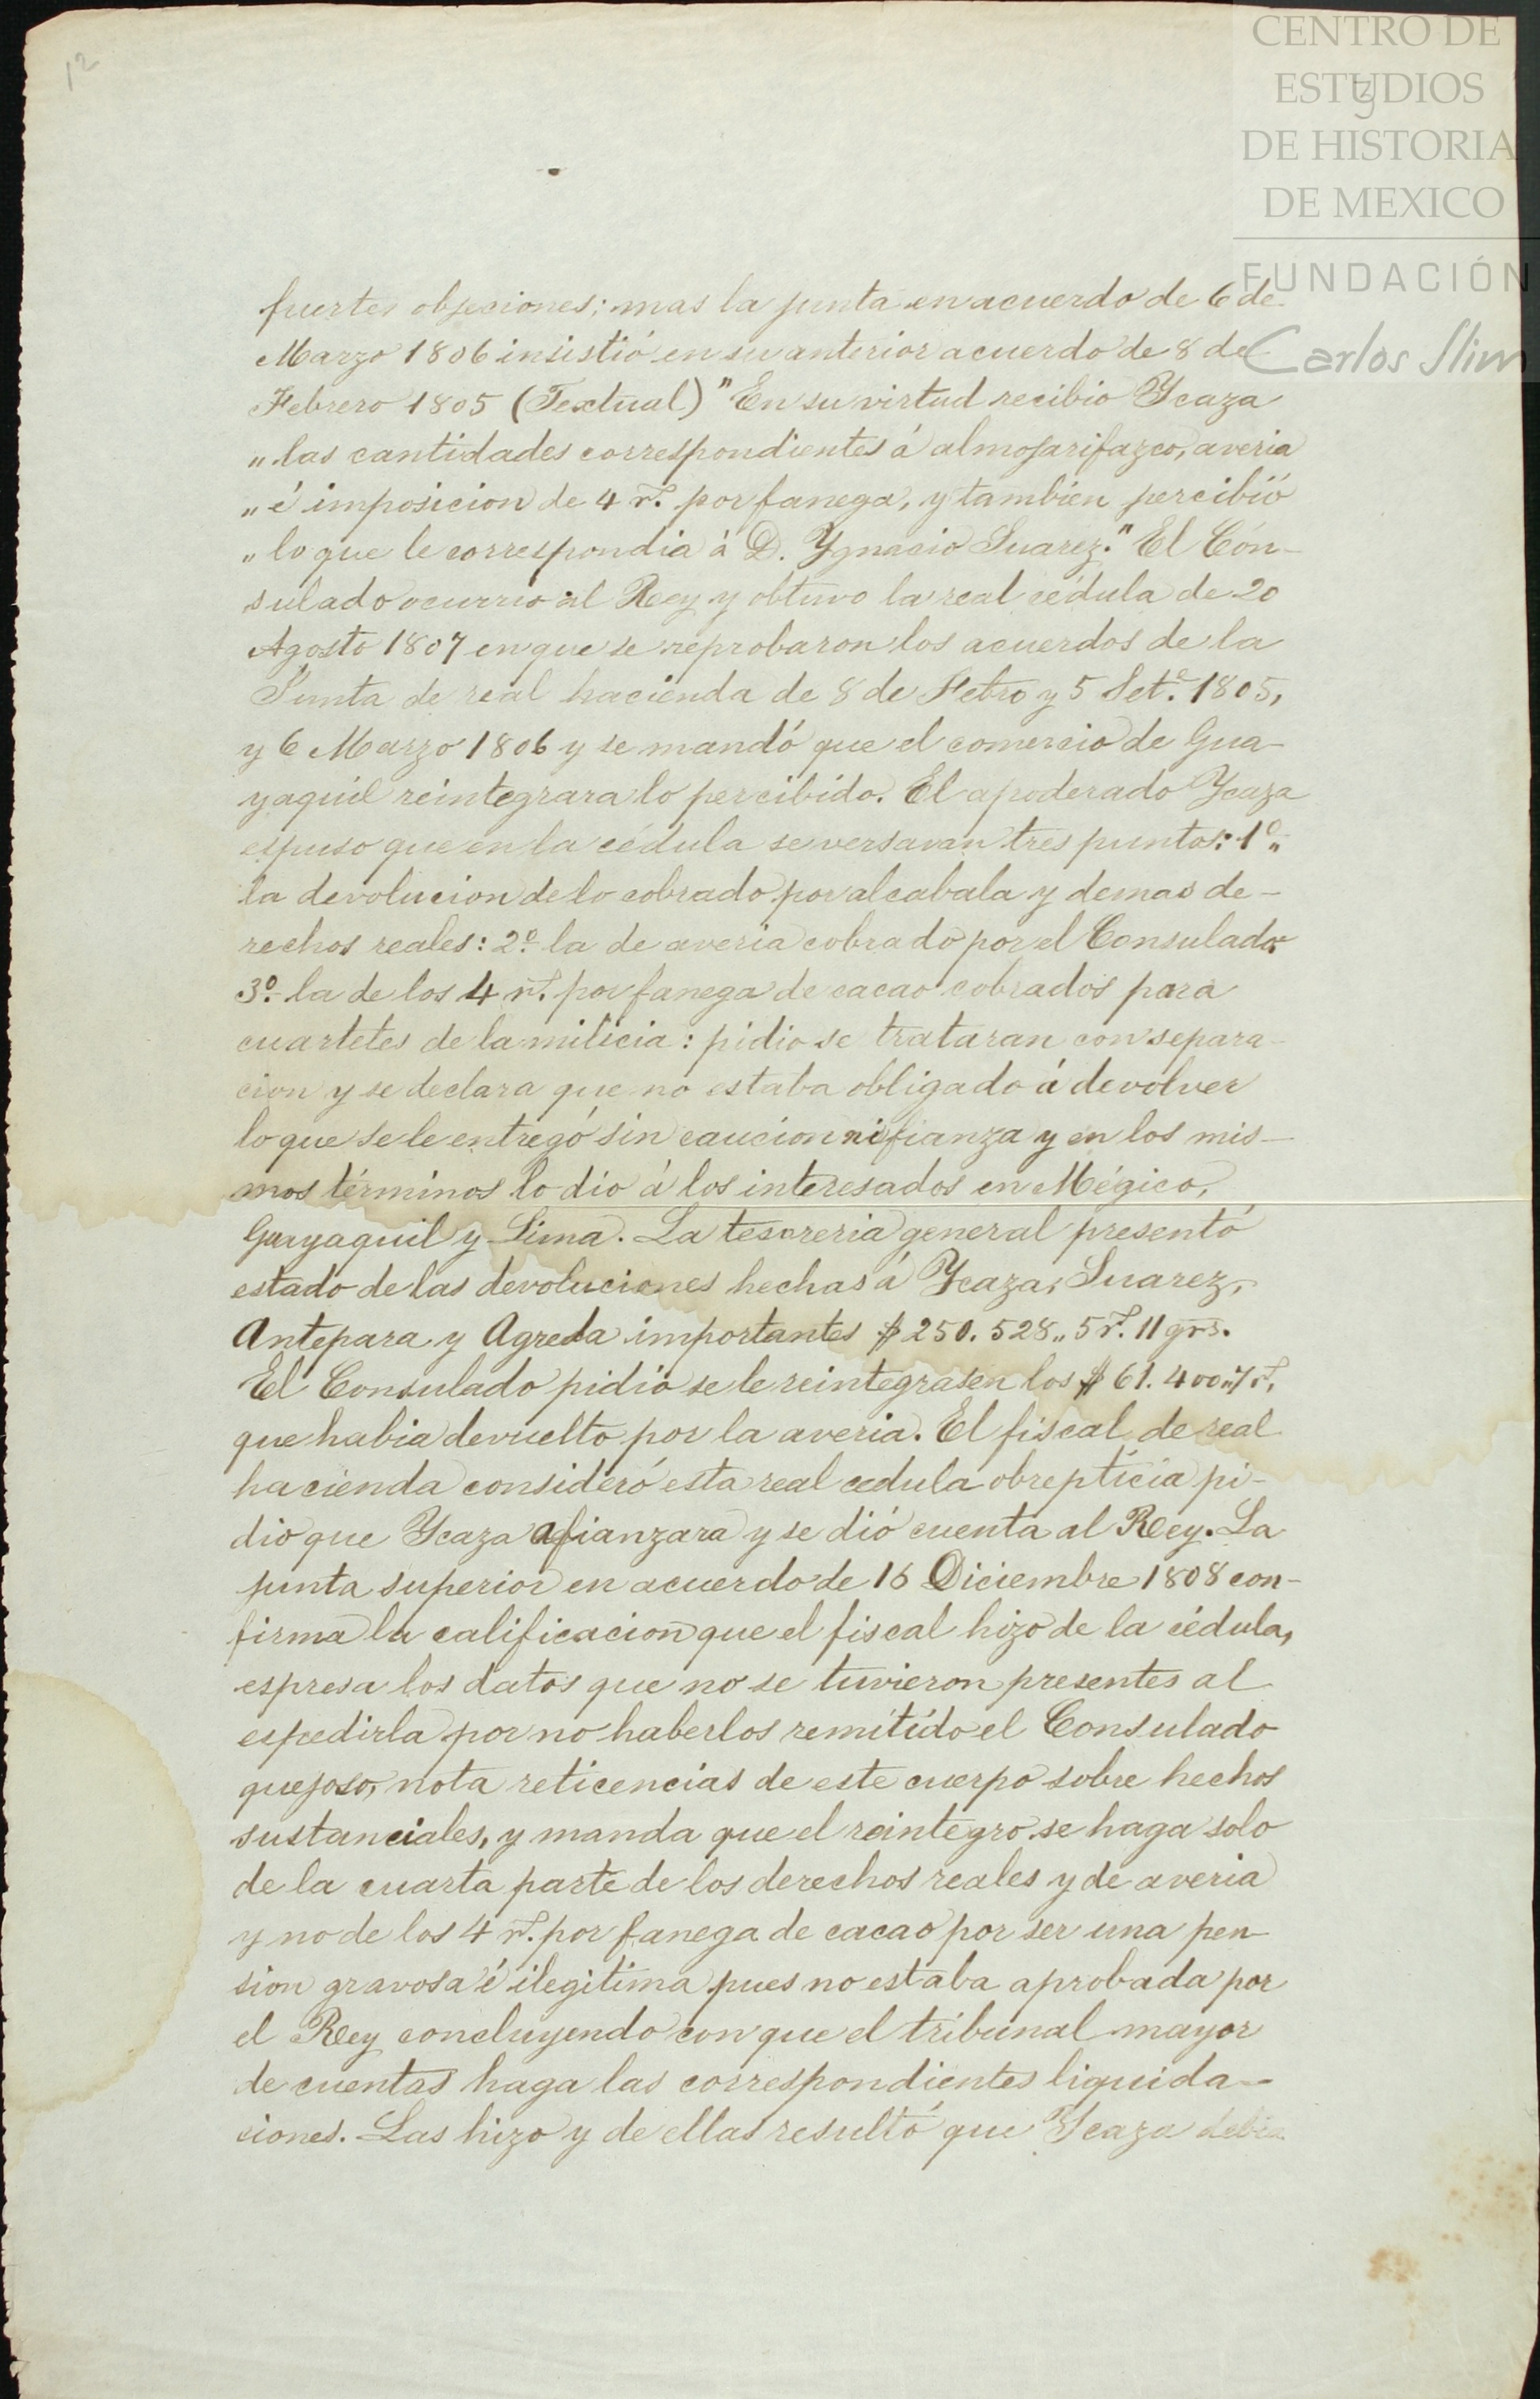 12
CENTRO DE
ESTUDIOS
DE HISTORIA
DE MEXICO
FUNDACIÓN
Carlos Slim
fuertes objeciones; mas la junta en acuerdo de 6 de
Marzo 1806 insistió en su anterior acuerdo de 8 de
Febrero 1805 (Textual) "En su virtud recibio Ycaza
" las cantidades correspondientes á almojarifazco, averia
" é imposicion de 4 r.^s por fanega, y tambien percibió
" lo que le correspondia á D. Ygnacio Suarez." El Con-
sulado ocurrio al Rey y obtuvo la real cédula de 20
Agosto 1807 en que se reprobaron los acuerdos de la
Junta de real hacienda de 8 de Febro y 5 Set.^e 1805,
y 6 Marzo 1806 y se mandó que el comercio de Gua-
yaquil reintegrara lo percibido. El apoderado Ycaza
espuso que en la cédula se versavan tres puntos: 1.º
la devolucion de lo cobrado por alcabala y demas de-
rechos reales: 2.º la de averia cobrado por el Consulado:
3.º la de los 4 r.^s por fanega de cacao cobrados para
cuarteles de la milicia: pidio se trataran con separa-
cion y se declara que no estaba obligado á devolver
lo que se le entregó sin caucion ni fianza y en los mis-
mos términos lo dio á los interesados en Mégico,
Guayaquil y Lima. La tesoreria general presentó
estado de las devoluciones hechas á Ycaza, Suarez,
Antepara y Agreda importantes $ 250.528,, 5 r.^s 11 grs.
El Consulado pidio se le reintegrasen los $ 61.400,,7 r.^s
que habia devuelto por la averia. El fiscal de real
hacienda consideró esta real cedula obrepticia pi-
dio que Ycaza afianzara y se dió cuenta al Rey. La
junta superior en acuerdo de 16 Diciembre 1808 con-
firma la calificacion que el fiscal hizo de la cédula,
espresa los datos que no se tuvieron presentes al
espedirla por no haberlos remitido el Consulado
quejoso, nota reticencias de este cuerpo sobre hechos
sustanciales, y manda que el reintegro se haga solo
de la cuarta parte de los derechos reales y de averia
y no de los 4 r.^s por fanega de cacao por ser una pen-
sion gravosa é ilegitima pues no estaba aprobada por
el Rey concluyendo con que el tribunal mayor
de cuentas haga las correspondientes liquida-
ciones. Las hizo y de ellas resultó que Ycaza debia